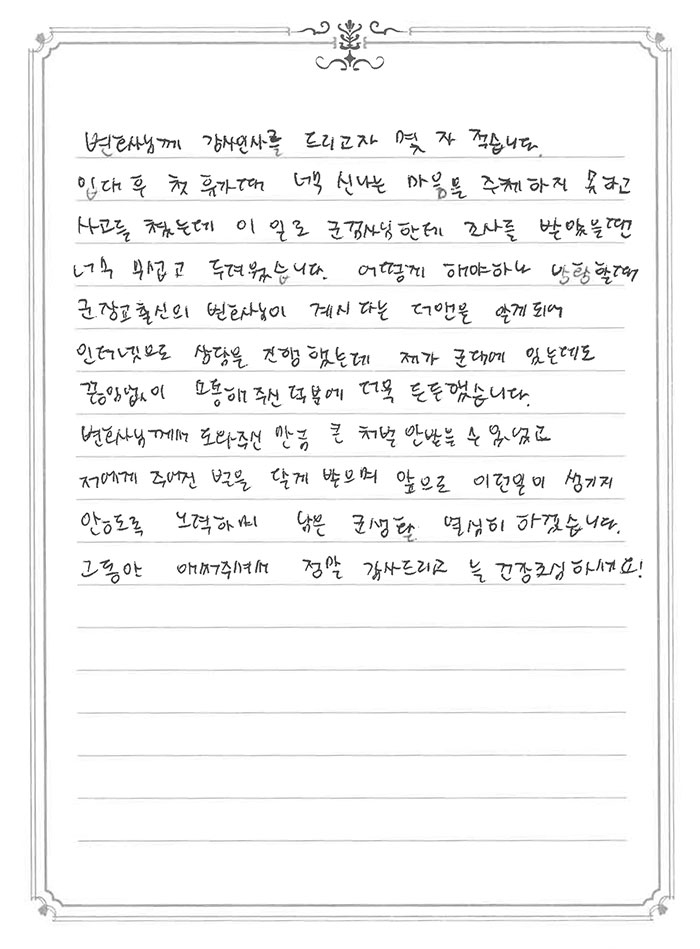 변호사님께 감사인사를 드리고자 몇 자 적습니다.
입대 후 첫 휴가때 너무 신나는 마음을 주체하지 못하고
사고를 쳤는데 이 일로 군검사님한테 조사를 받았을땐
너무 무섭고 두려웠습니다. 어떻게 해야하나 방황할때
군장교출신의 변호사님이 계시다는 것을 알게되어
인터넷으로 상담을 진행했는데 제가 군대에 있는데도
끊임없이 소통해주신 덕분에 더욱 든든했습니다.
변호사님께서 도와주신 만큼 큰 처벌 안받을 수 있었고
저에게 주어진 벌을 달게 받으며 앞으로 이런일이 생기지
안하도록 노력하며 남은 군생활 열심히 하겠습니다.
그동안 애써주셔서 정말 감사드리고 늘 건강조심하세요!